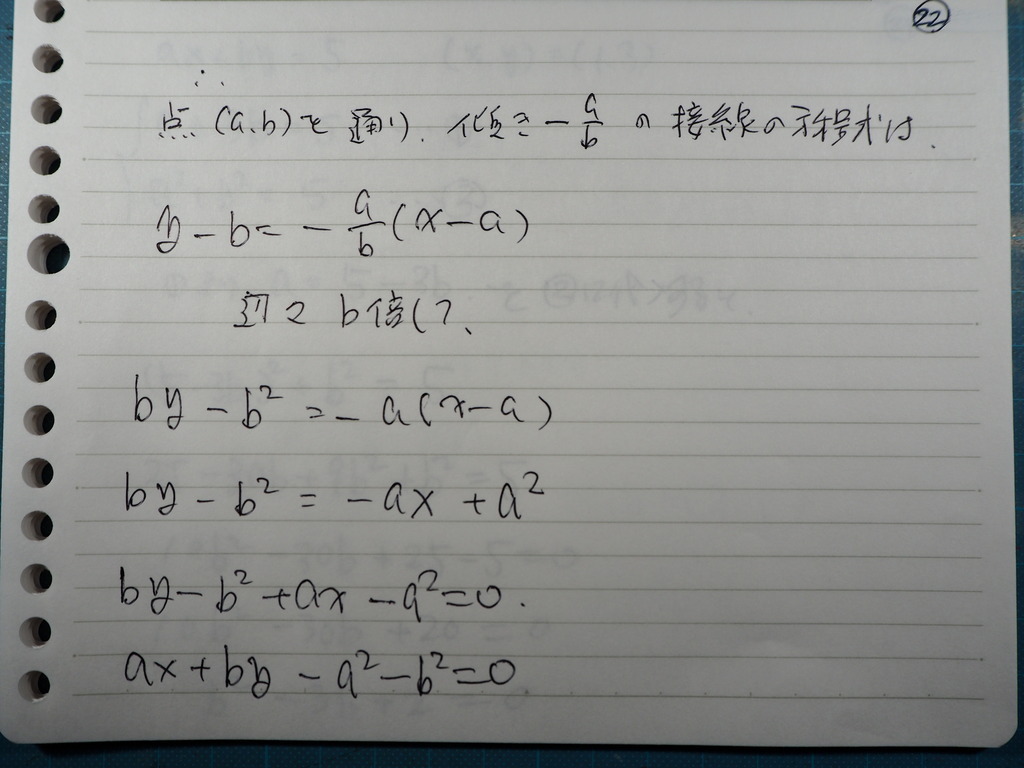 22
∴
点(a,b)を通り、傾き-a/bの接線の方程式は、
y-b=-a/b(x-a)
辺々b倍して、
by-b²=-a(x-a)
by-b²=-ax+a²
by-b²+ax-a²=0.
ax+by-a²-b²=0